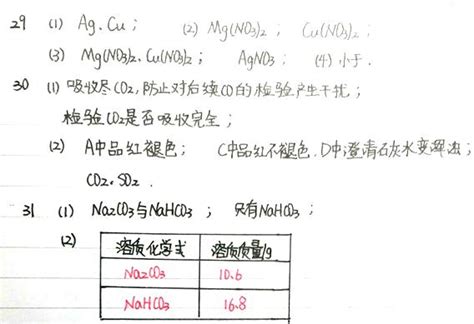 29 (1) Ag、Cu； (2) Mg(NO3)2； Cu(NO3)2；
(3) Mg(NO3)2、Cu(NO3)2； AgNO3； (4) 小于．
30 (1) 吸收尽CO2，防止对后续CO的检验产生干扰；
检验CO2是否吸收完全；
(2) A中品红褪色； C中品红不褪色，D中澄清石灰水变浑浊；
CO2、SO2．
31 (1) Na2CO3与NaHCO3； 只有NaHCO3；
(2)
溶质化学式 溶质质量/g
Na2CO3 10.6
NaHCO3 16.8